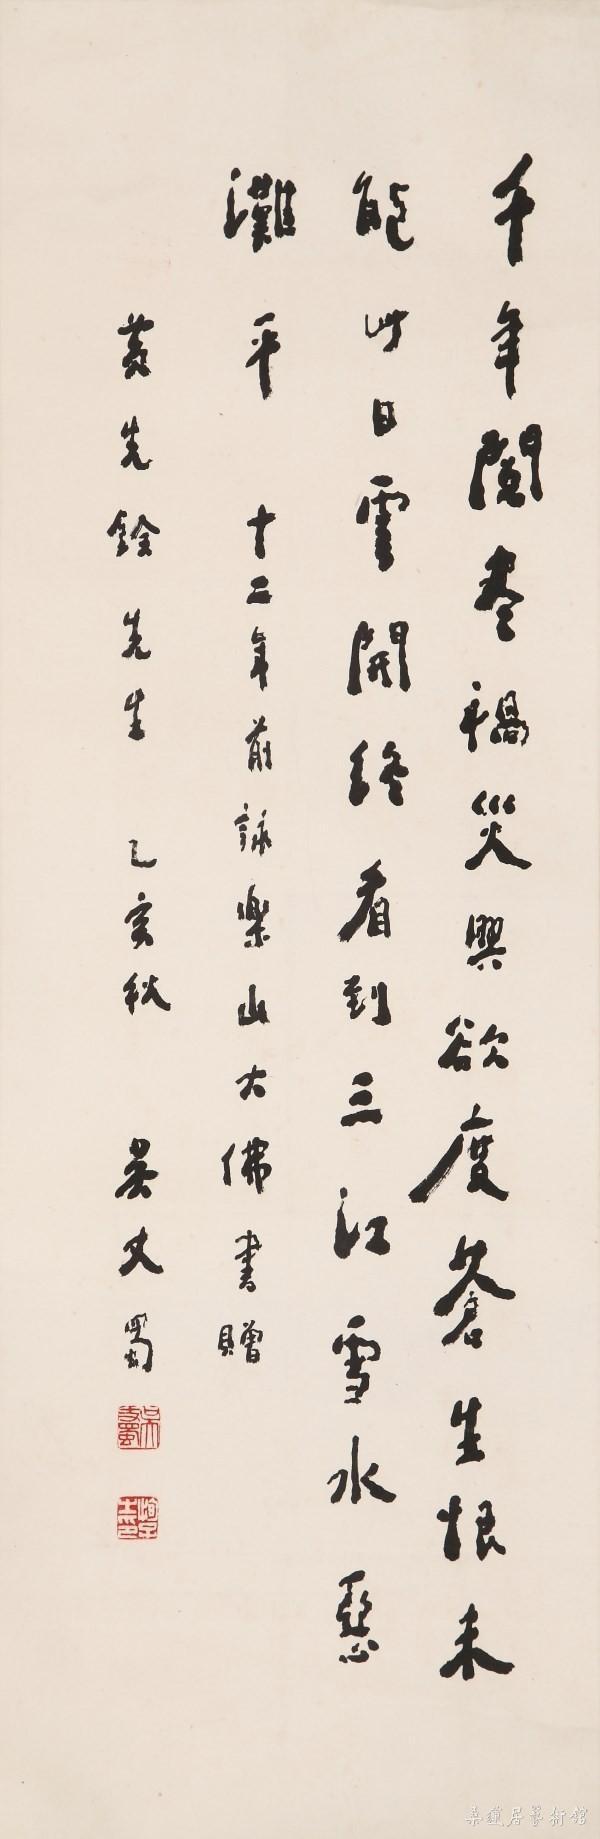 千年閱盡禍災興欲度蒼生恨未
能此日雲開終看到三江雪水惡
灘平 十二年前詠樂山大佛書贈
黃先銓先生 乙亥秋 吳丈蜀
吳丈蜀
桑蓮居藝術館